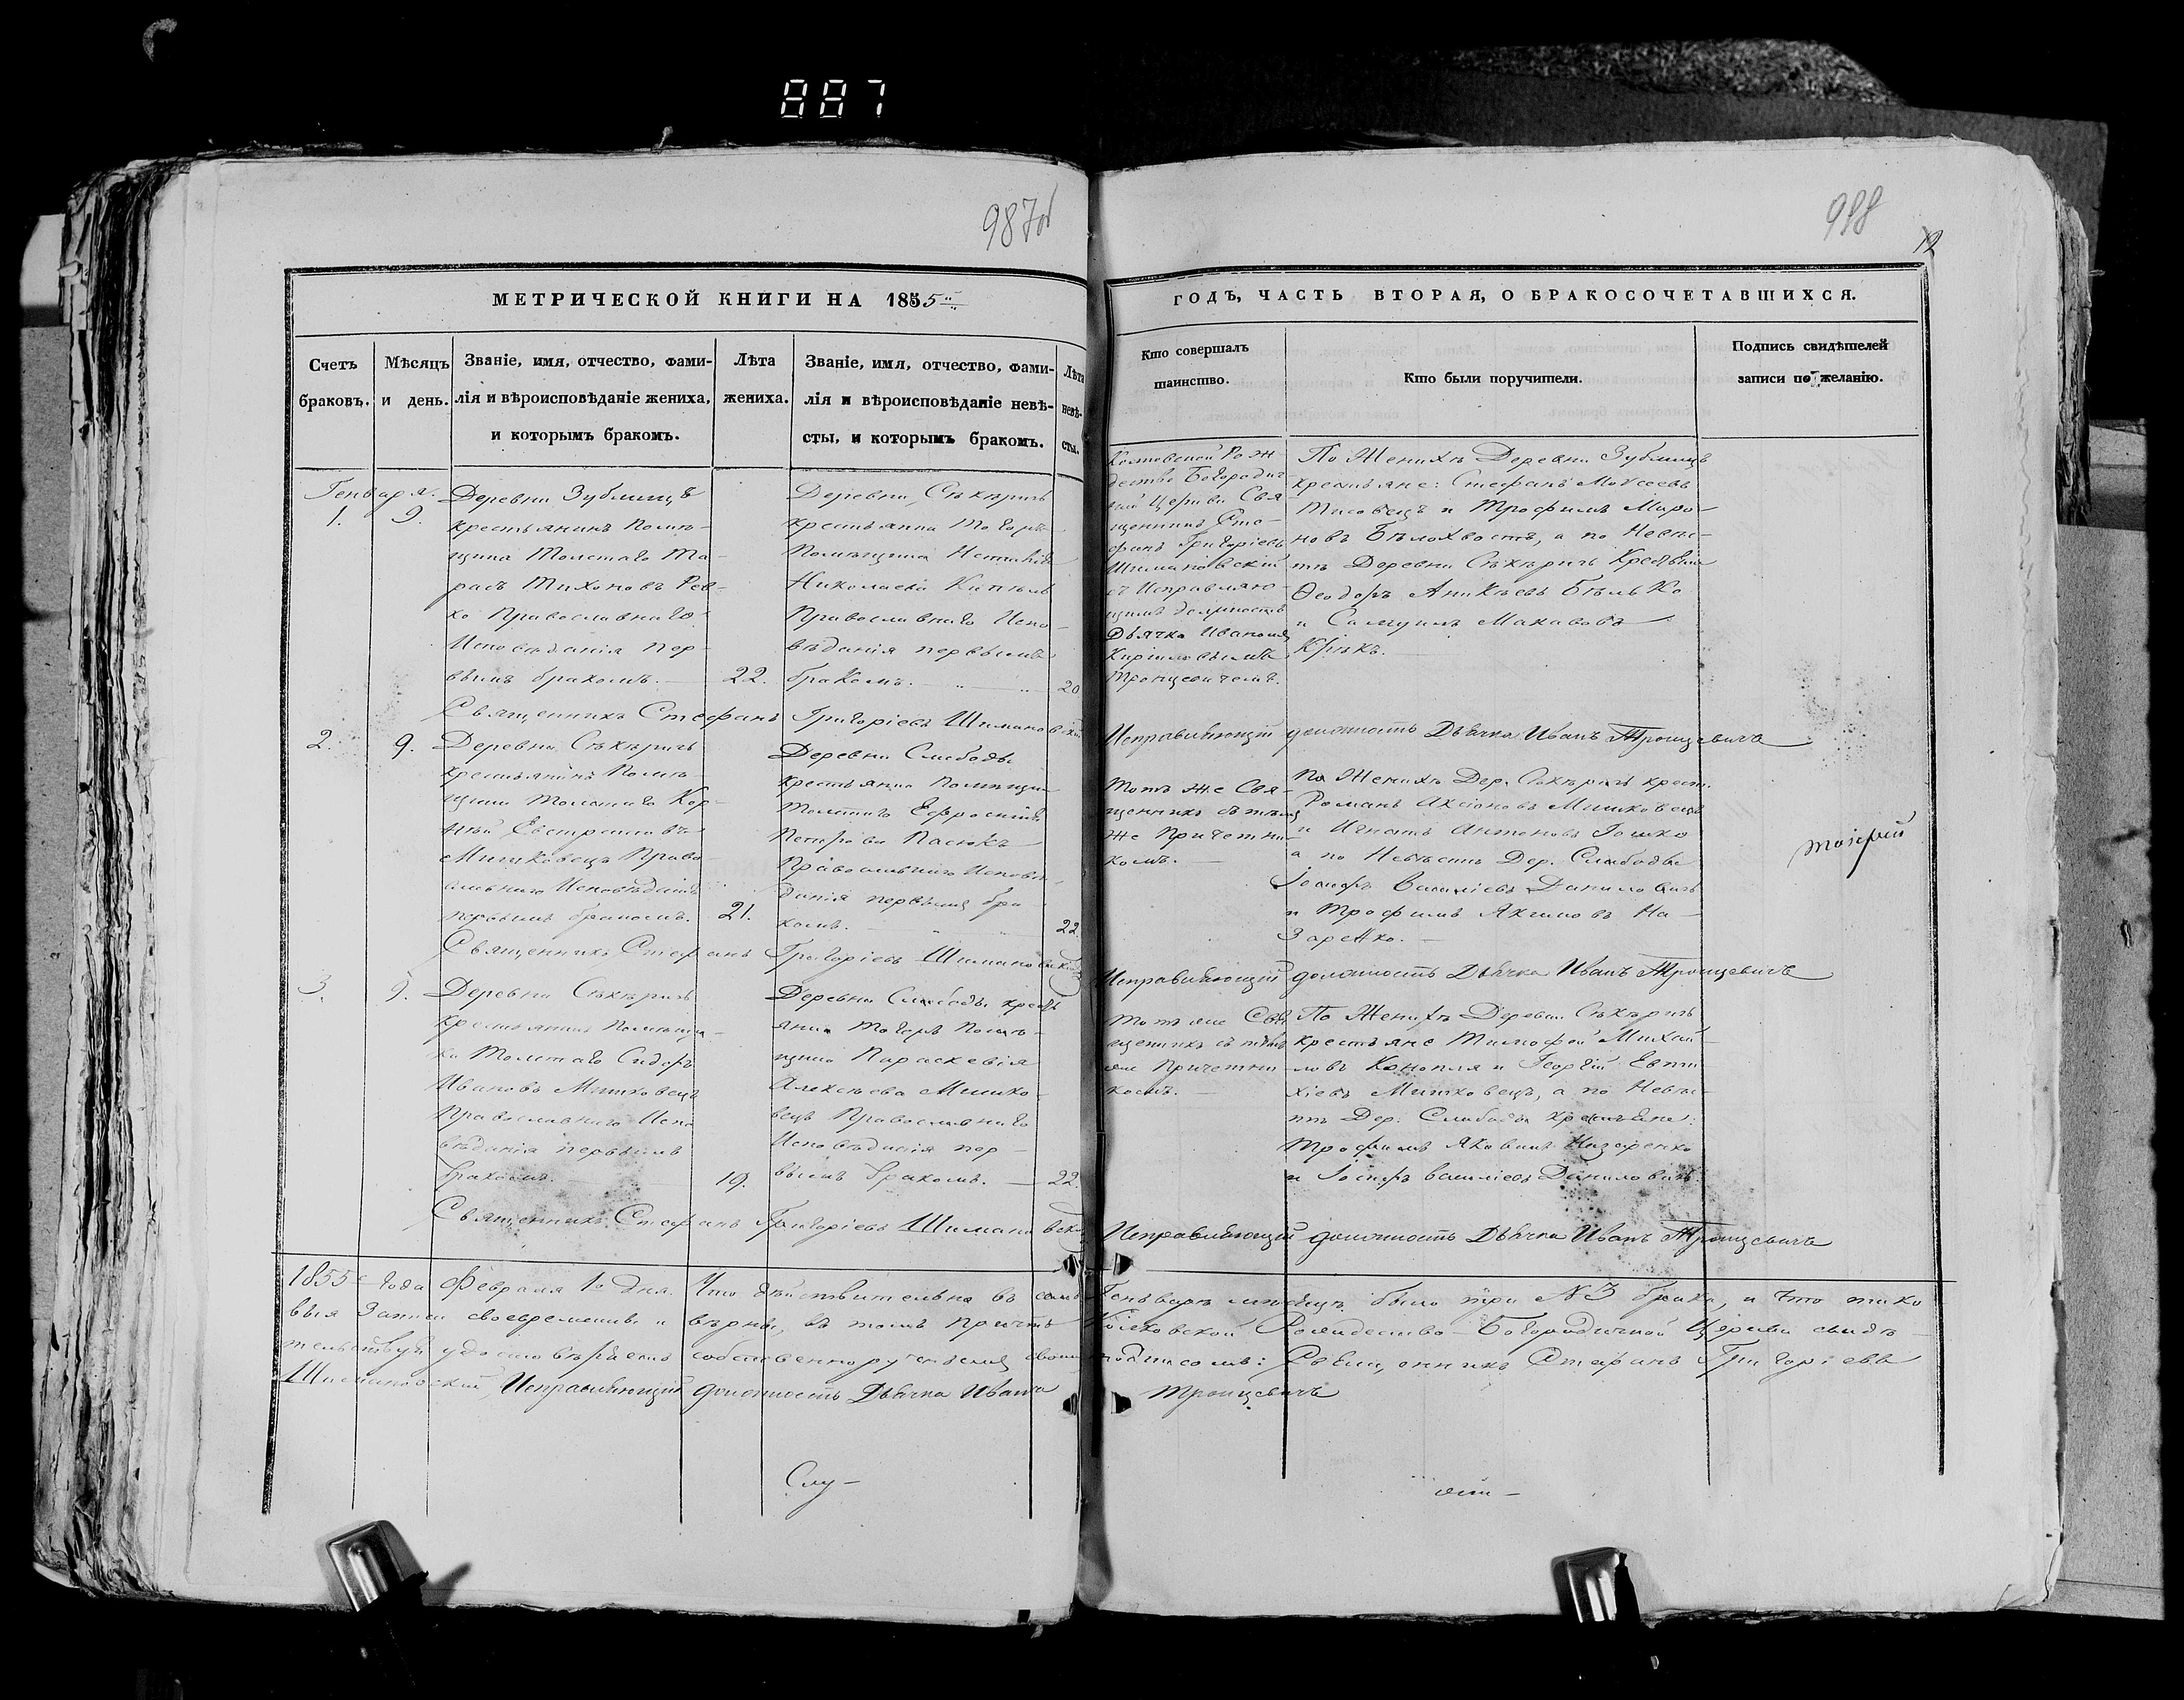 887
987об
988
12
МЕТРИЧЕСКОЙ КНИГИ НА 1855
ГОДЪ, ЧАСТЬ ВТОРАЯ, О БРАКОСОЧЕТАВШИХСЯ.
Счетъ
браковъ.
Мѣсяцъ
и день.
Званіе, имя, отчество, фами-
лія и вѣроисповѣданіе жениха,
и которымъ бракомъ.
Лѣта
жениха.
Званіе, имя, отчество, фами-
лія и вѣроисповѣданіе невѣ-
сты, и которымъ бракомъ.
Лѣта
невѣ-
сты.
Кто совершалъ
таинство.
Кто были поручители.
Подпись свидѣтелей
записи по желанію.
Генваря.
1. 9.
Деревни Зублищъ
крестьянинъ Помѣ-
щика Толстаго Та-
расъ Тихоновъ Рев-
ко Православнаго
Исповѣданія пер-
вымъ бракомъ. 22.
Деревни Сѣкѣричъ
крестьянка тогожъ
Помѣщика
Николаева
Православнаго Испо-
вѣданія первымъ
бракомъ. 20
Рож-
дество Богородич
ной Церкви Свя
щенникъ Сте-
фанъ Григоріевъ
Шимановскій
съ Исправляю-
щимъ должность
Дьячка Иваномъ
Кириловымъ
Троицевичемъ.
По Женихѣ Деревни Зублищъ
крестьяне: Стефанъ Моѵсеевъ
и Трофимъ Миро-
новъ Бѣлохвостъ, а по Невѣс-
тѣ Деревни Сѣкѣричъ Крестьяне
Ѳеодоръ Аникѣевъ Бѣлько
и Самуилъ
Священникъ Стефанъ Григоріевъ Шимановскій
Исправляющій должность Дьячка Иванъ Троицевичъ
2. 9.
Деревни Сѣкѣричъ
крестьянинъ Помѣ-
щика Толстаго Кор-
нѣй Евстратіевъ
Мишковецъ Право-
славнаго Исповѣданія
первымъ бракомъ. 21.
Деревни Слободы
крестьянка Помѣщика
Толстаго Ефросинія
Петрова Пасюкъ
Православнаго Исповѣ-
данія первымъ бра
комъ. 22.
Тотъ же Свя-
щенникъ съ тѣмъ
же Причетни-
комъ.
По Женихѣ Дер. Сѣкѣричъ крест.
Романъ Аксіоновъ Мишковецъ
и Игнатъ Антоновъ Гошко
а по Невѣстѣ Дер. Слободы
Іосифъ Василіевъ Даниловичъ
и Трофимъ Якимовъ На-
заренко.
Священникъ Стефанъ Григоріевъ Шимановскій
Исправляющій должность Дьячка Иванъ Троицевичъ
3. 9.
Деревни Сѣкѣричъ
крестьянинъ Помѣщи-
ка Толстаго Сидоръ
Ивановъ Мишковецъ
Православнаго Испо
вѣданія первымъ
бракомъ. 19.
Деревни Слободы кресть
янка тогожъ Помѣ-
щика Параскевія
Алексѣева Мишко-
вецъ Православнаго
Исповѣданія пер-
вымъ бракомъ. 22.
Тотъ же Свя
щенникъ съ тѣмъ
же Причетни
комъ.
По Женихѣ Деревни Сѣкѣричъ
крестьяне Тимофей Михай-
ловъ Конопля и Георгій Евти
хіевъ Мишковецъ, а по Невѣс-
тѣ Дер. Слободы крестьяне:
Трофимъ Якимовъ Назаренко
и Іосифъ Василіевъ Даниловичъ.
Священникъ Стефанъ Григоріевъ Шимановскій
Исправляющій должность Дьячка Иванъ Троицевичъ
1855 года Февраля 1 дня. Что дѣйствительно въ семъ Генварѣ мѣсяцѣ было три №3 брака, и что тако
выя Записи своевременны и вѣрны, въ томъ Причтъ Рождество-Богородичной Церкви свидѣ-
тельствуя удостовѣряетъ собственноручнымъ своимъ подписомъ: Священникъ Стефанъ Григоріевъ
Шимановскій, Исправляющій должность Дьячка Иванъ Троицевичъ